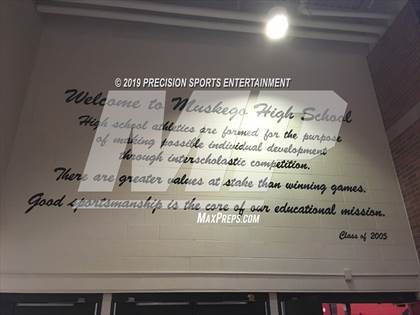 © 2019 PRECISION SPORTS ENTERTAINMENT
Welcome to Muskego High School
High school athletics are formed for the purpose
of making possible individual development
through interscholastic competition.
There are greater values at stake than winning games.
Good sportsmanship is the core of our educational mission.
MAXPREPS.COM
Class of 2005